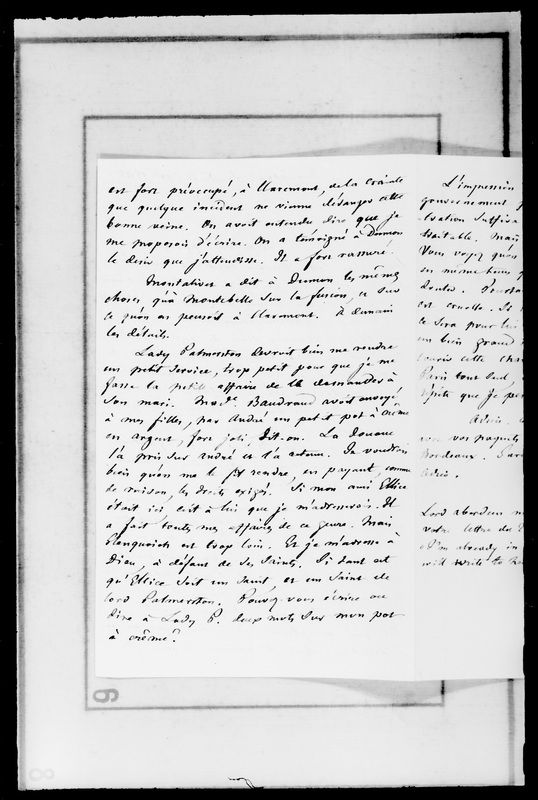 est fort préoccupé, à Claremont, de la crainte
que quelque incident ne vienne déranger cette
bonne veine. On avoit entendu dire que je
me proposois d'écrire. On a témoigné à Dumon
le desir que j'attendisse. Il a fort rassuré.
Montalivet a dit à Dumon les mêmes
choses qu'à Montebello sur la fusion, et sur
ce qu'on en pensoit à Claremont. À demain
les détails.
Lady Palmerston devroit bien me rendre
un petit service, trop petit pour que je me
fasse la petite affaire de le demander à
son mari. Made. Baudrand avoit envoyé,
à mes filles, par André un petit pot à crème
en argent, fort joli, dit-on. La Douane
l'a pris sur André et l'a retenu. Je voudrois
bien qu'on me le fît rendre, en payant, comme
de raison, les droits exigés. Si mon ami Ellice
était ici, c'est à lui que je m'adresserois. Il
a fait toutes mes affaires de ce genre. Mais
Glenquoich est trop loin. Et je m'adresse à
Dieu, à défaut de ses Saints. Si tant est
qu'Ellice soit un Saint, et un Saint de
lord Palmerston. Pouvez-vous écrire ou
dire à Lady P. deux mots sur mon pot
à crême?
L'impression
gouvernement
Vous voyez qu'on
ses même
est cruelle. Si
ce sera pour lui
un bien grand
Paris tout seul,
que je
Adieu.
vos paquets
Bordeaux.
Adieu.
Lord Aberdeen
votre lettre du
already in
will write to
6
8